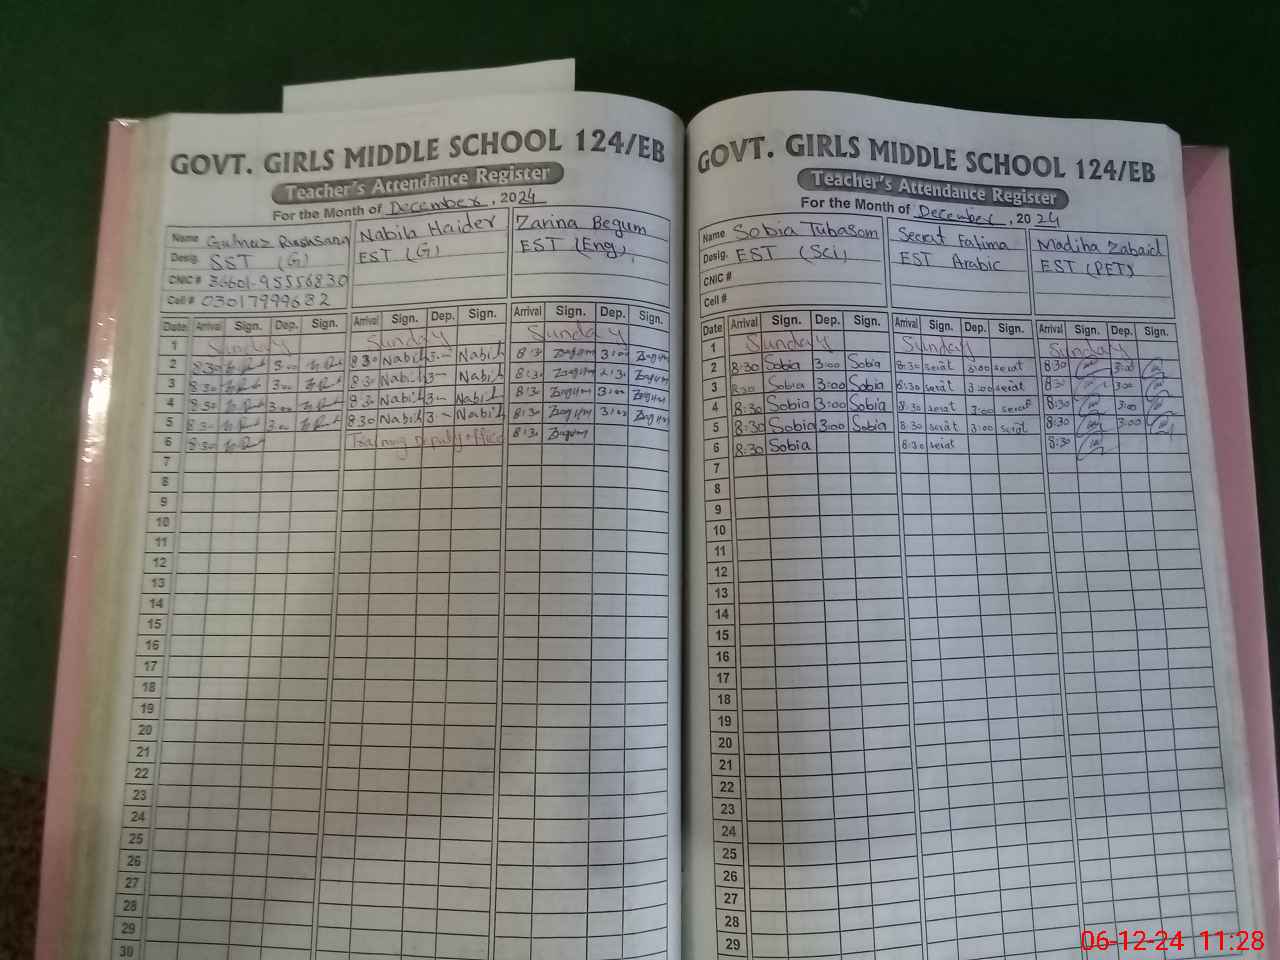 GOVT. GIRLS MIDDLE SCHOOL 124/EB
Teacher's Attendance Register
For the Month of December, 2024
Name Nabila Haider Zarina Begum
Desig. SST (G) EST (G) EST (Eng)
CNIC #
Cell # 03017999682
Date Arrival Sign. Dep. Sign. Arrival Sign. Dep. Sign. Arrival Sign. Dep. Sign.
1 Sunday Sunday Sunday
2 8:30 3:00 8:30 Nabila 3- Nabila 8:30 3:00
3 8:30 3:00 8:30 Nabila 3- Nabila 8:30
4 8:30 3:00 8:30 Nabila 3- Nabila 8:30 3:00
5 8:30 3:00 8:30 Nabila 3- Nabila 8:30 3:00
6 8:30 Training Deputy office 8:30
7
8
9
10
11
12
13
14
15
16
17
18
19
20
21
22
23
24
25
26
27
28
29
30
GOVT. GIRLS MIDDLE SCHOOL 124/EB
Teacher's Attendance Register
For the Month of December, 2024
Name Sobia Tubasom Seerat Fatima Madiha Zabaid
Desig. EST (Sci) EST Arabic EST (PET)
CNIC #
Cell #
Date Arrival Sign. Dep. Sign. Arrival Sign. Dep. Sign. Arrival Sign. Dep. Sign.
1 Sunday Sunday Sunday
2 8:30 Sobia 3:00 Sobia 8:30 serat 3:00 serat 8:30 3:00
3 8:30 Sobia 3:00 Sobia 8:30 serat 3:00 serat 8:30 3:00
4 8:30 Sobia 3:00 Sobia 8:30 serat 3:00 serat 8:30 3:00
5 8:30 Sobia 3:00 Sobia 8:30 serat 3:00 serat 8:30 3:00
6 8:30 Sobia 8:30 serat 8:30
7
8
9
10
11
12
13
14
15
16
17
18
19
20
21
22
23
24
25
26
27
28
29
06-12-24 11:28